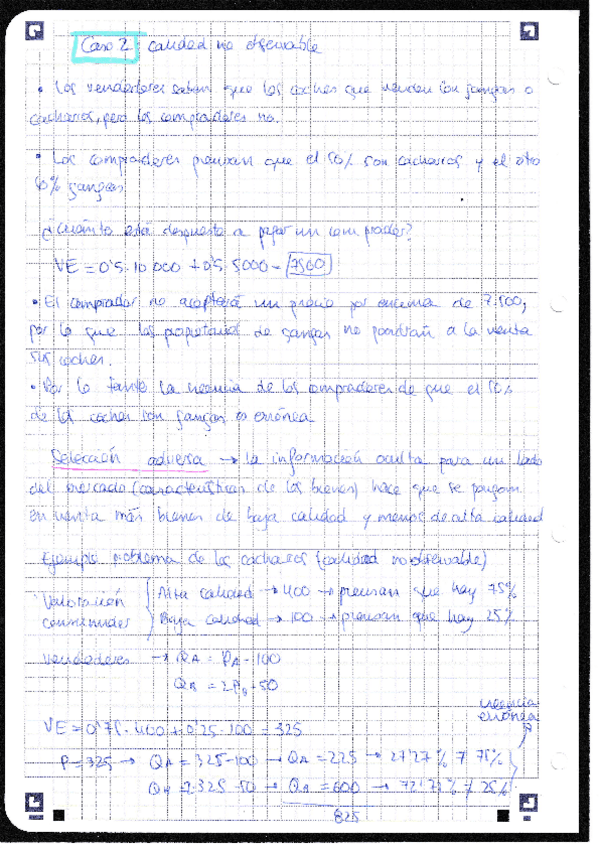 Caso 2: calidad no observable
• Los vendedores saben que los coches que venden son gangas o
cacharros, pero los compradores no.
• Los compradores piensan que el 50% son cacharros y el otro
50% gangas.
¿Cuánto está dispuesto a pagar un comprador?
VE = 0'5 · 10 000 + 0'5 · 5000 = 7500
• El comprador no aceptará un precio por encima de 7.500,
por lo que los propietarios de gangas no pondrán a la venta
sus coches.
• Por lo tanto la creencia de los compradores de que el 50%
de los coches son gangas es errónea
Selección adversa → la información oculta para un lado
del mercado (características de los bienes) hace que se pongan
en venta más bienes de baja calidad y menos de alta calidad
Ejemplo problema de los cacharros (calidad no observable)
Valoración consumidor
Alta calidad → 400 → piensan que hay 75%
Baja calidad → 100 → piensan que hay 25%
Vendedores → QA = PA - 100
QB = 2PB - 50
VE = 0'75 · 400 + 0'25 · 100 = 325
creencia
errónea
P = 325 → QA = 325 - 100 → QA = 225 → 27'27% ≠ 75%
QB = 2·325 - 50 → QB = 600 → 72'72% ≠ 25%
825